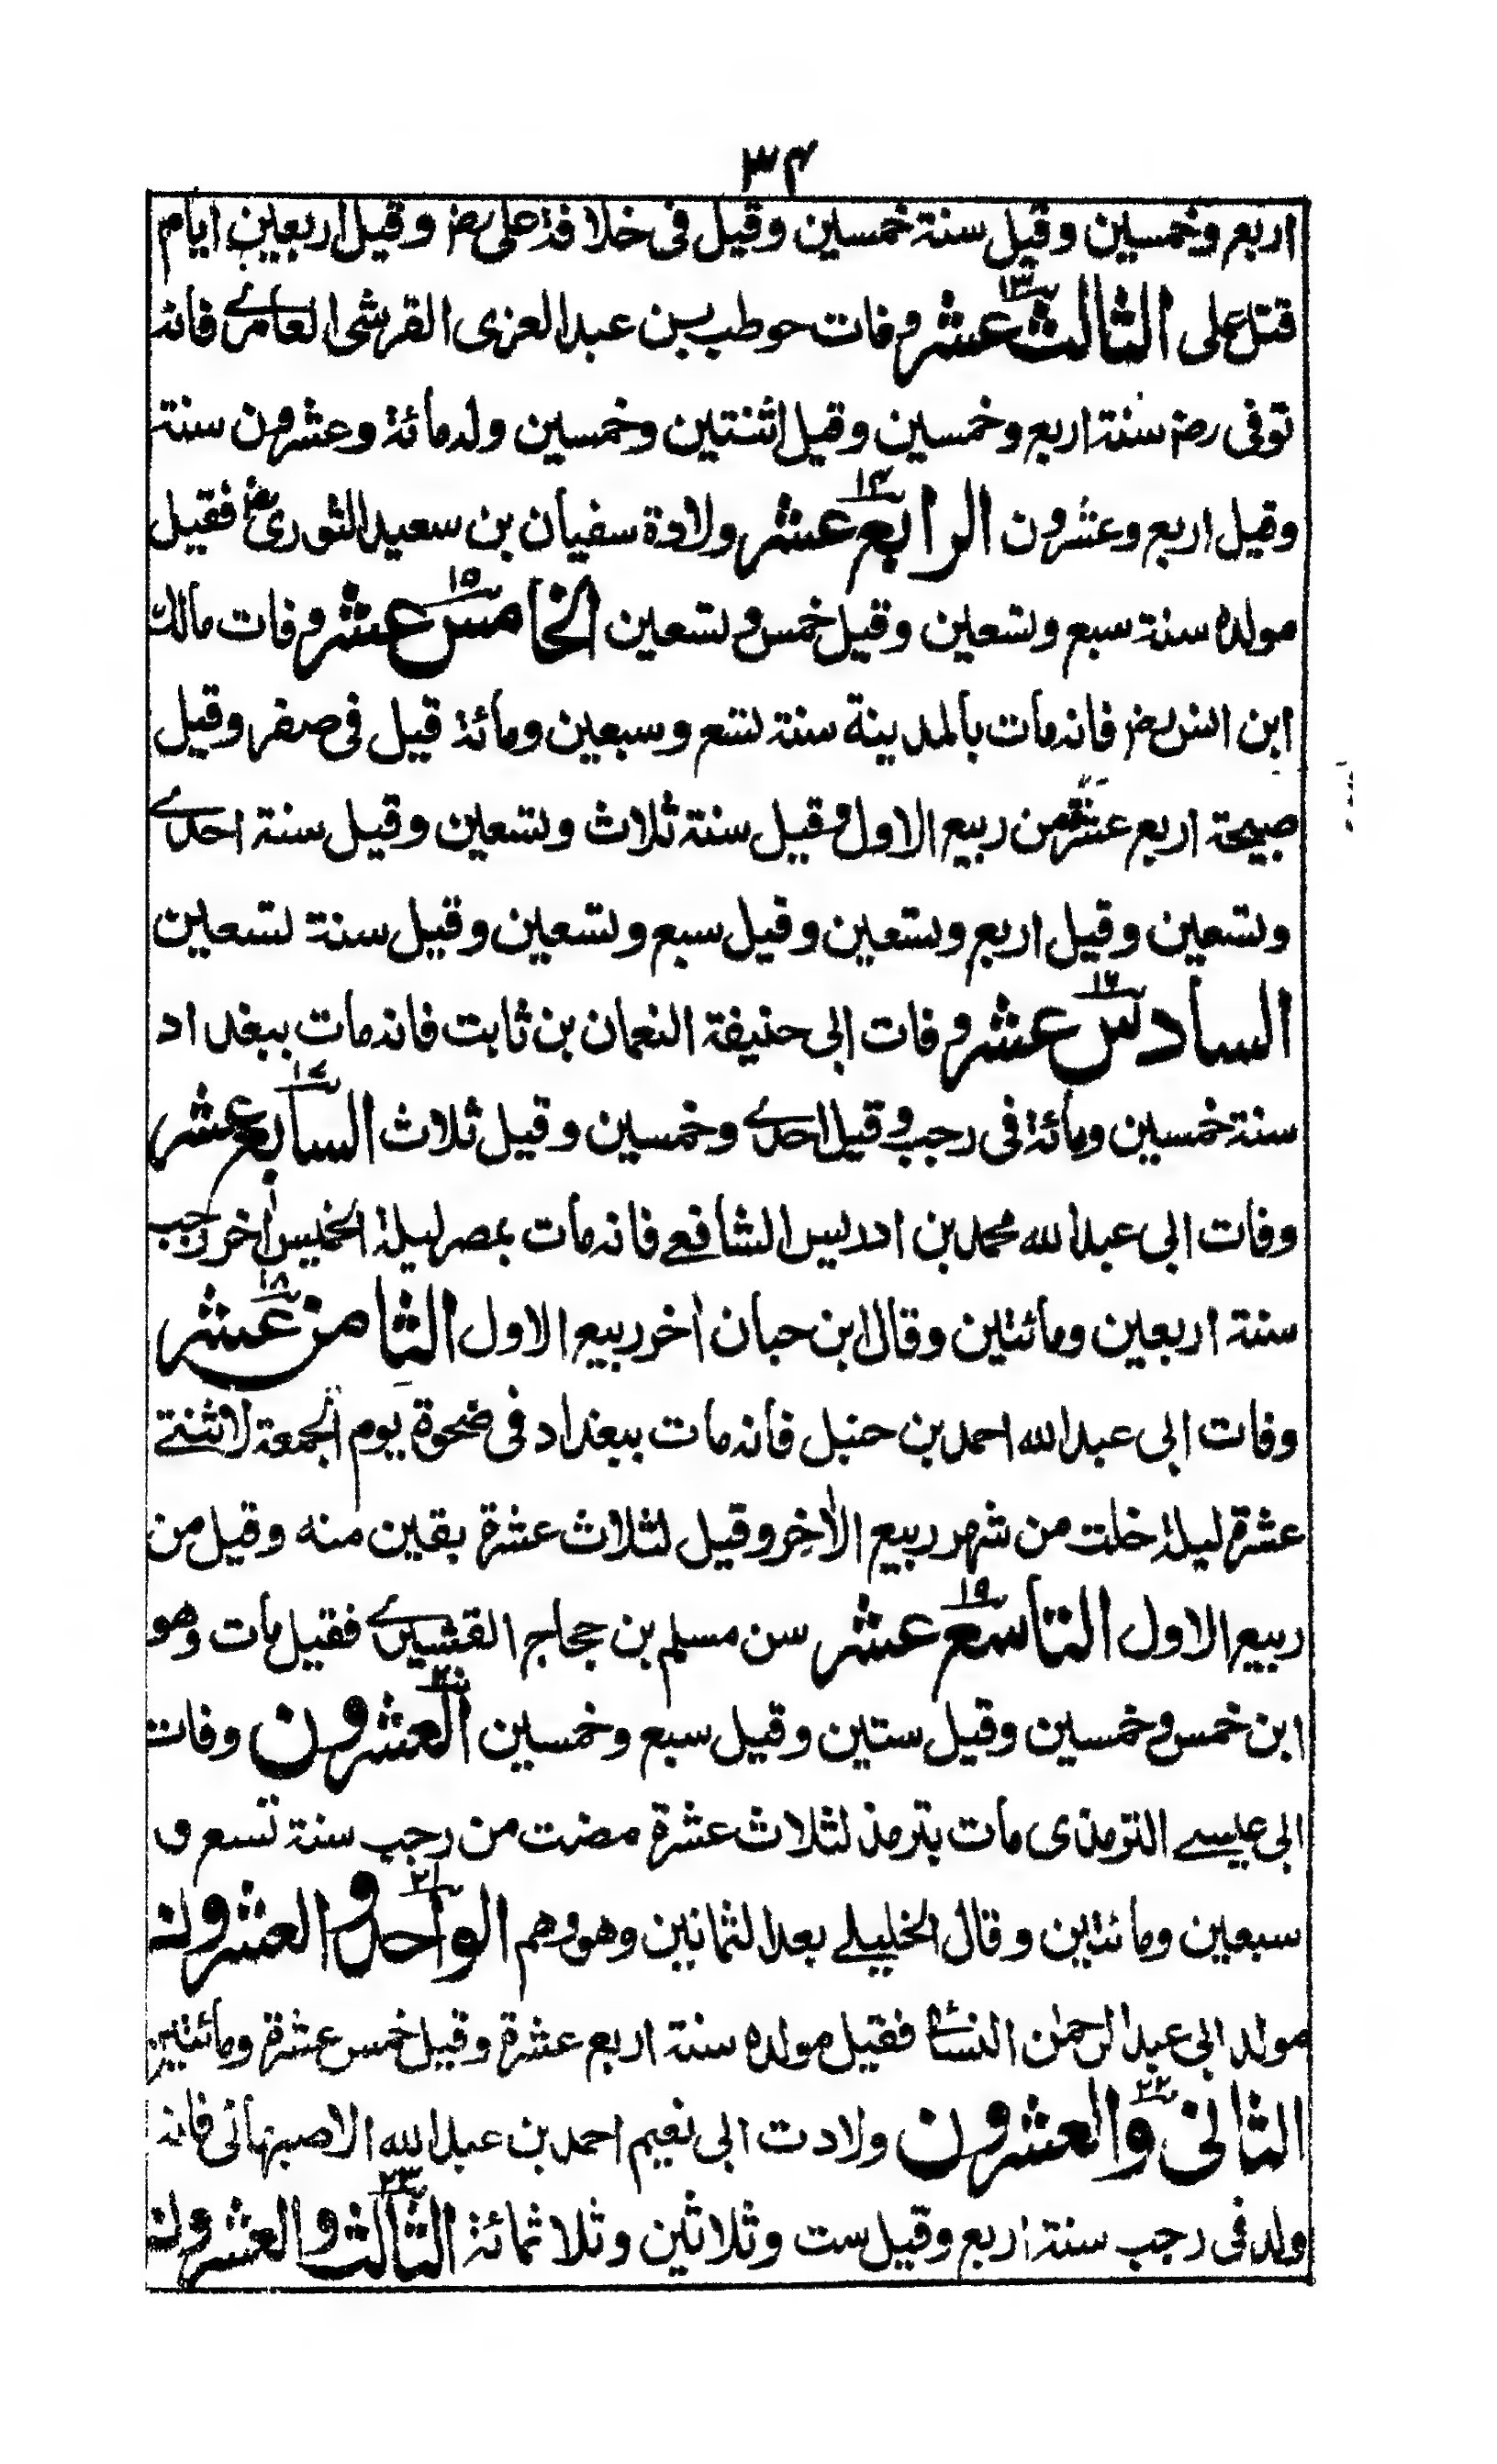 ۳۴
اربع وخمسين وقيل سنة خمسين وقيل فى خلافة على رض وقيل اربعين ايام
قتل على الثالث عشر وفات حوطب بن عبد العزى القرشى العامرے فانه
توفى رض سنة اربع وخمسين وقيل اثنتين وخمسين وله مائة وعشرون سنة
وقيل اربع وعشرون الرابع عشر ولادة سفيان بن سعيد الثورى رض فقيل
مولده سنة سبع وتسعين وقيل خمس وتسعين الخامس عشر وفات مالك
ابن انس رض فانه مات بالمدينة سنة تسع وسبعين ومائة قيل فى صفر وقيل
صبيحة اربع عشرة من ربيع الاول وقيل سنة ثلاث وتسعين وقيل سنة احدے
وتسعين وقيل اربع وتسعين وقيل سبع وتسعين وقيل سنة تسعين
السادس عشر وفات ابى حنيفة النعمان بن ثابت فانه مات ببغداد
سنة خمسين ومائة فى رجب وقيل احدے وخمسين وقيل ثلاث السابع عشر
وفات ابى عبد الله محمد بن ادريس الشافعے فانه مات بمصر ليلة الخميس اٰخر رجب
سنة اربعين ومائتين وقال ابن حبان اٰخر ربيع الاول الثامن عشر
وفات ابى عبد الله احمد بن حنبل فانه مات ببغداد فى ضحوة يوم الجمعة لاثنتے
عشرة ليلة خلت من شهر ربيع الاٰخر وقيل لثلاث عشرة بقين منه وقيل من
ربيع الاول التاسع عشر سن مسلم بن حجاج القشيرے فقيل مات وهو
ابن خمس وخمسين وقيل ستين وقيل سبع وخمسين العشرون وفات
ابى عيسے الترمذى مات بترمذ لثلاث عشرة مضت من رجب سنة تسع و
سبعين ومائتين وقال الخليلے بعد الثمانين وهو وهم الواحد والعشرون
مولد ابى عبد الرحمٰن النسائى فقيل مولده سنة اربع عشرة وقيل خمس عشرة ومائتين
الثانى والعشرون ولادت ابى نعيم احمد بن عبد الله الاصبهانى فانه
ولد فى رجب سنة اربع وقيل ست وثلاثين وثلاثمائة الثالث والعشرون